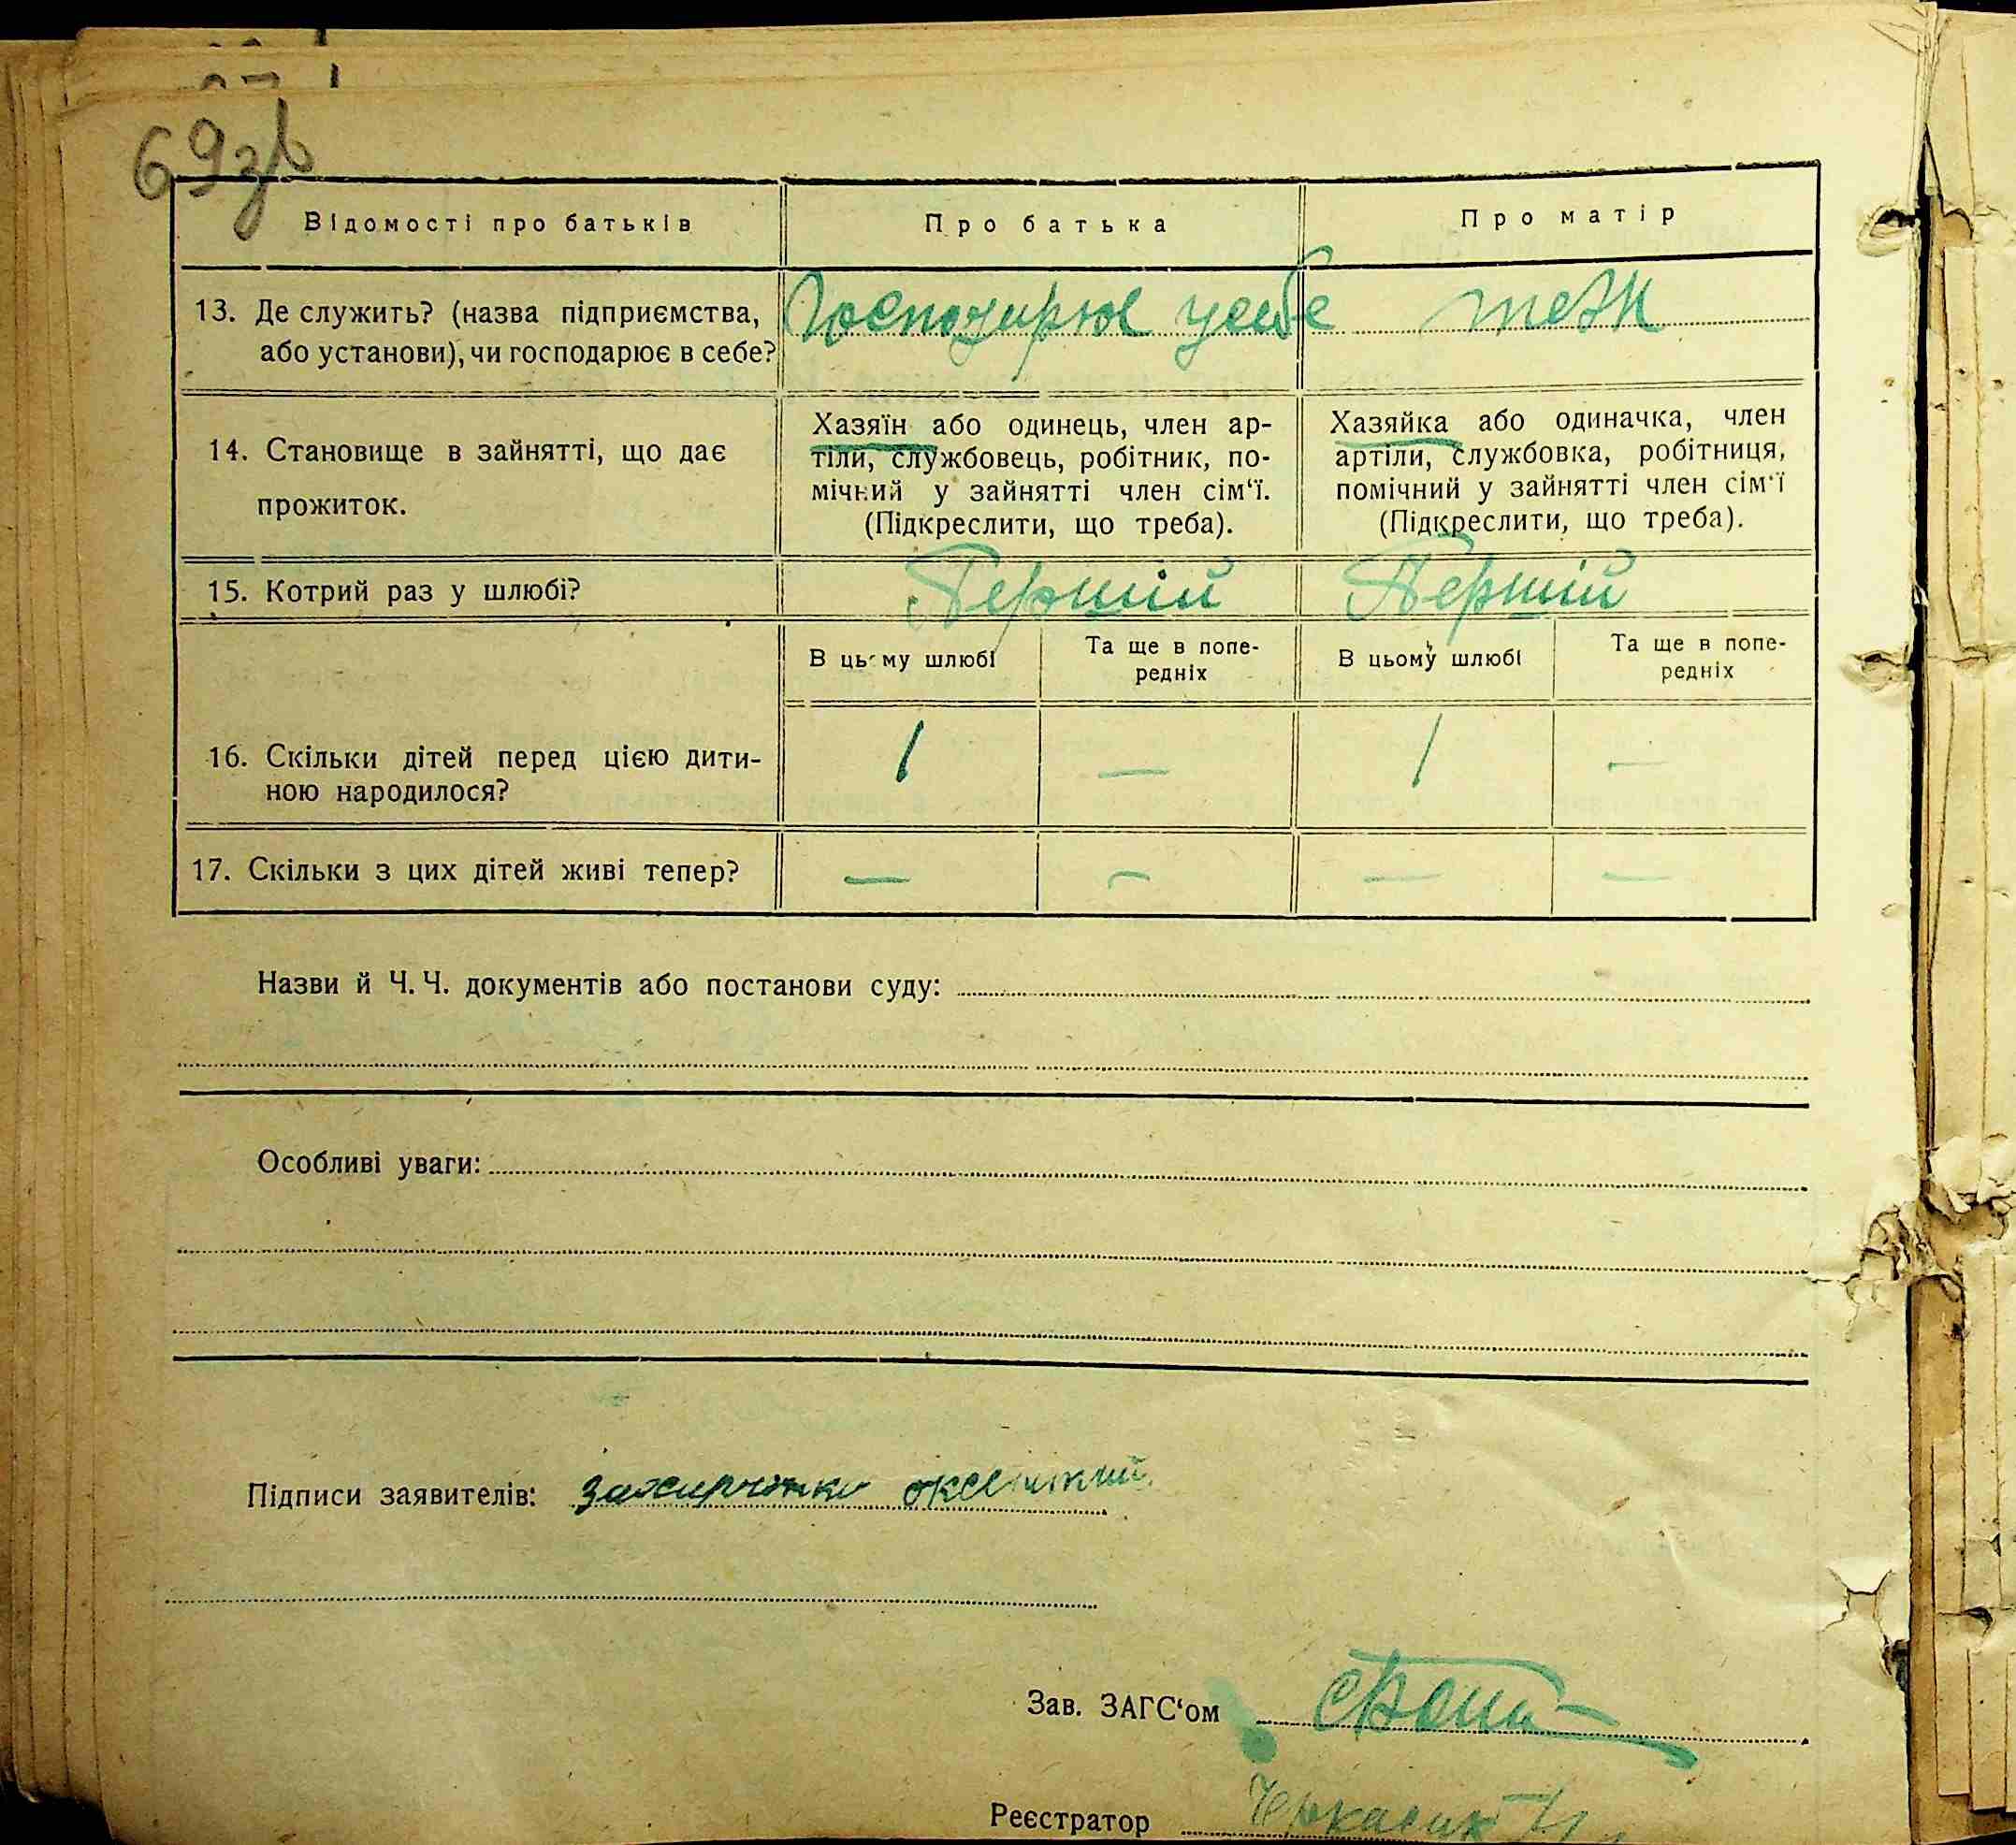 69зв
Відомості про батьків Про батька Про матір
13. Де служить? (назва підприємства, або установи), чи господарює в себе? Господарює у себе теж
14. Становище в зайнятті, що дає прожиток.
Хазяїн або одинець, член ар-
тіли, службовець, робітник, по-
мічний у зайнятті член сім‘ї.
(Підкреслити, що треба).
Хазяйка або одиначка, член
артіли, службовка, робітниця,
помічний у зайнятті член сім‘ї
(Підкреслити, що треба).
15. Котрий раз у шлюбі? Перший Перший
В цьому шлюбі Та ще в попе-
редніх В цьому шлюбі Та ще в попе-
редніх
16. Скільки дітей перед цією дити-
ною народилося? 1 — 1 —
17. Скільки з цих дітей живі тепер? — — — —
Назви й Ч. Ч. документів або постанови суду:
Особливі уваги:
Підписи заявителів:
Зав. ЗАГС‘ом
Реєстратор